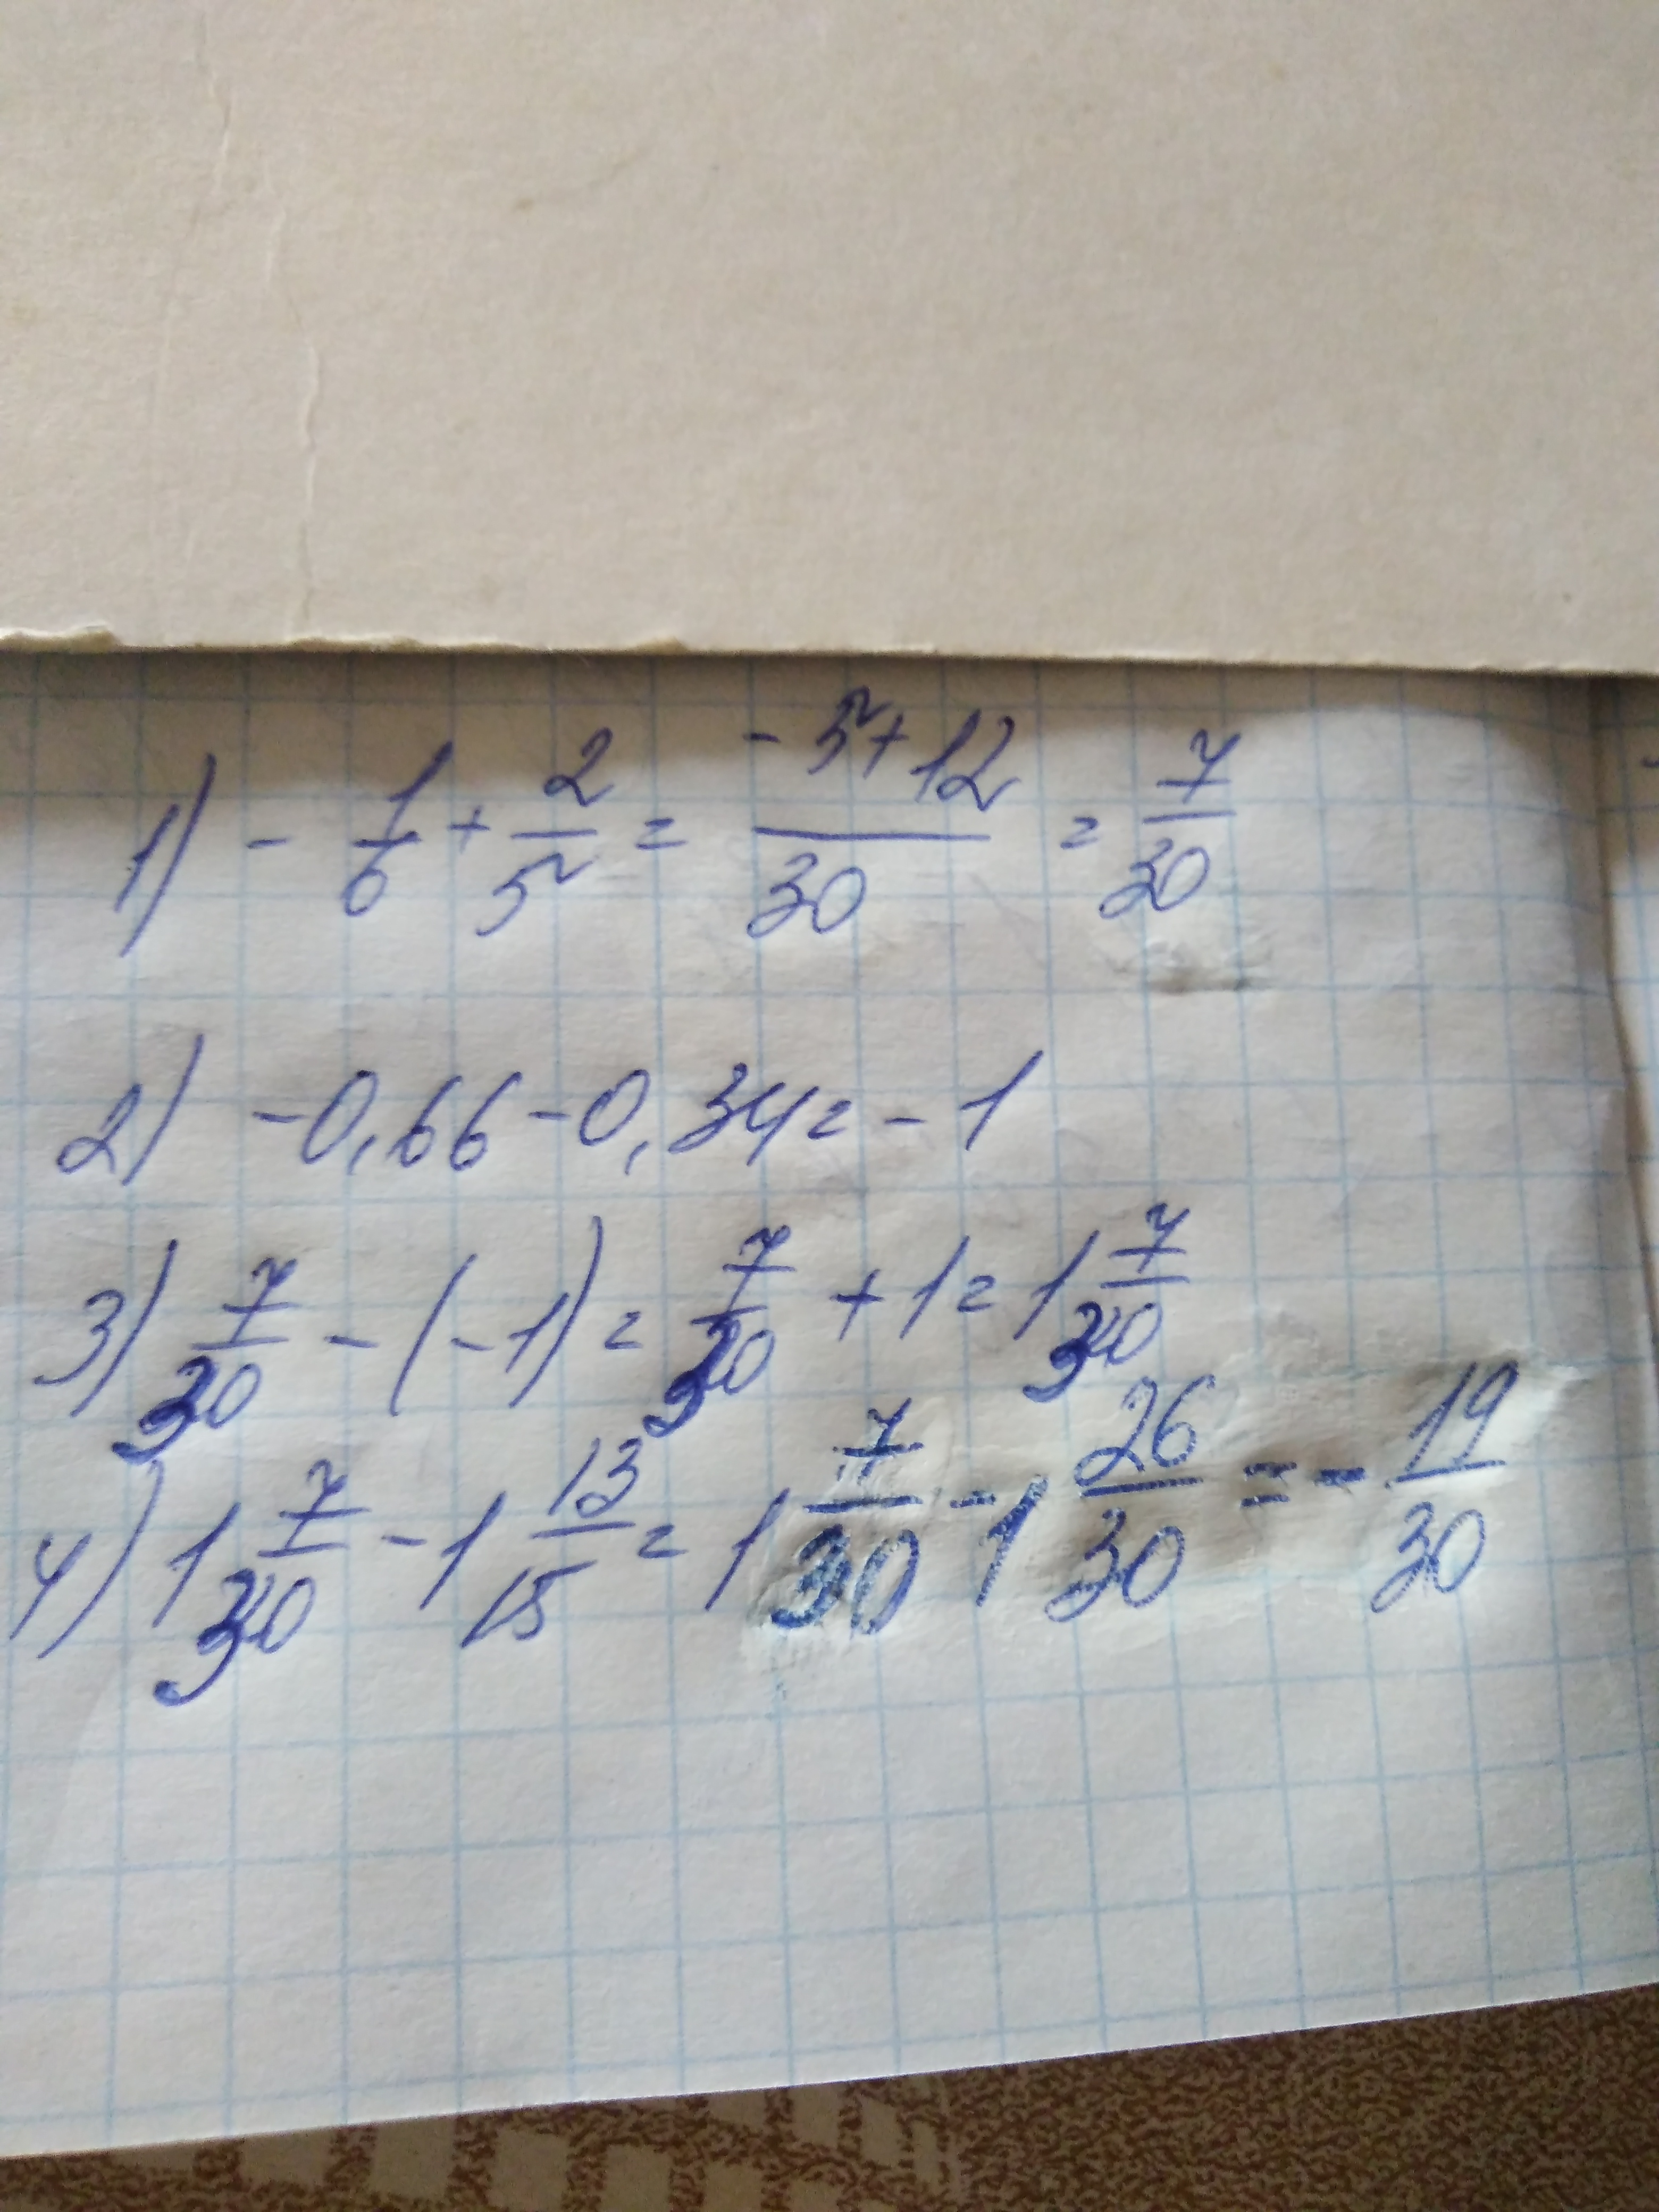 1) - 1/6 + 2/5 = (-5+12)/30 = 7/30
2) -0,66-0,34=-1
3) 7/30 - (-1) = 7/30 + 1 = 1 7/30
4) 1 7/30 - 1 13/15 = 1 7/30 - 1 26/30 = - 19/30